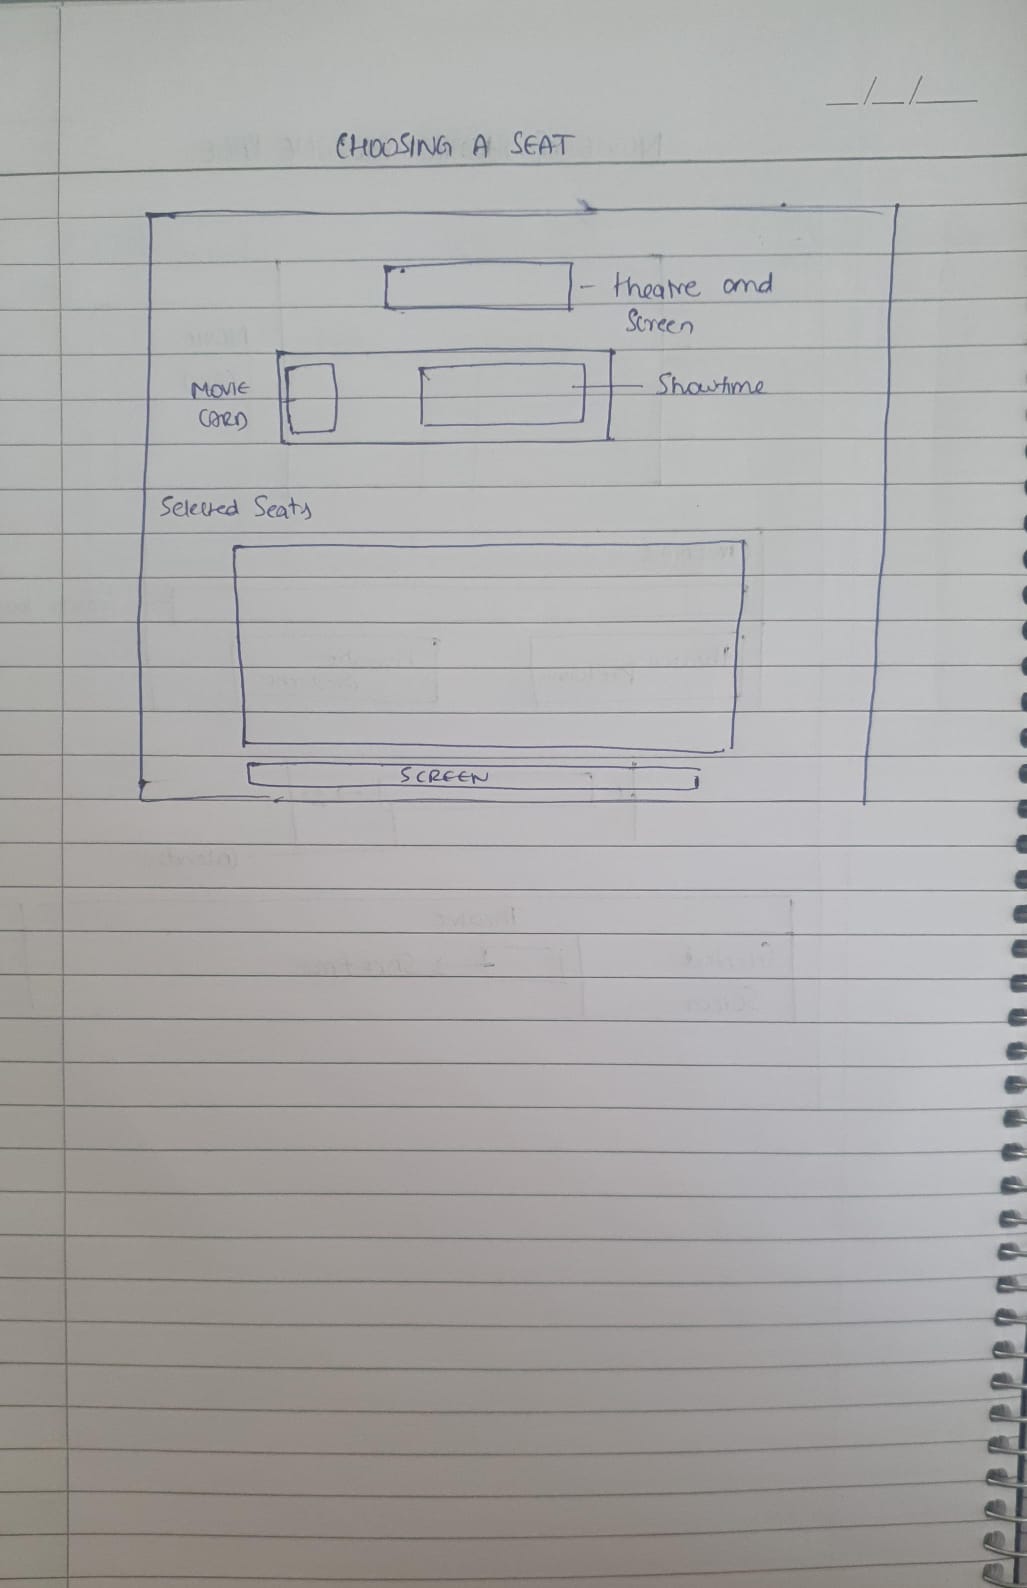 CHOOSING A SEAT
theatre and
Screen
MOVIE
CARD
Showtime
Selected Seats
SCREEN